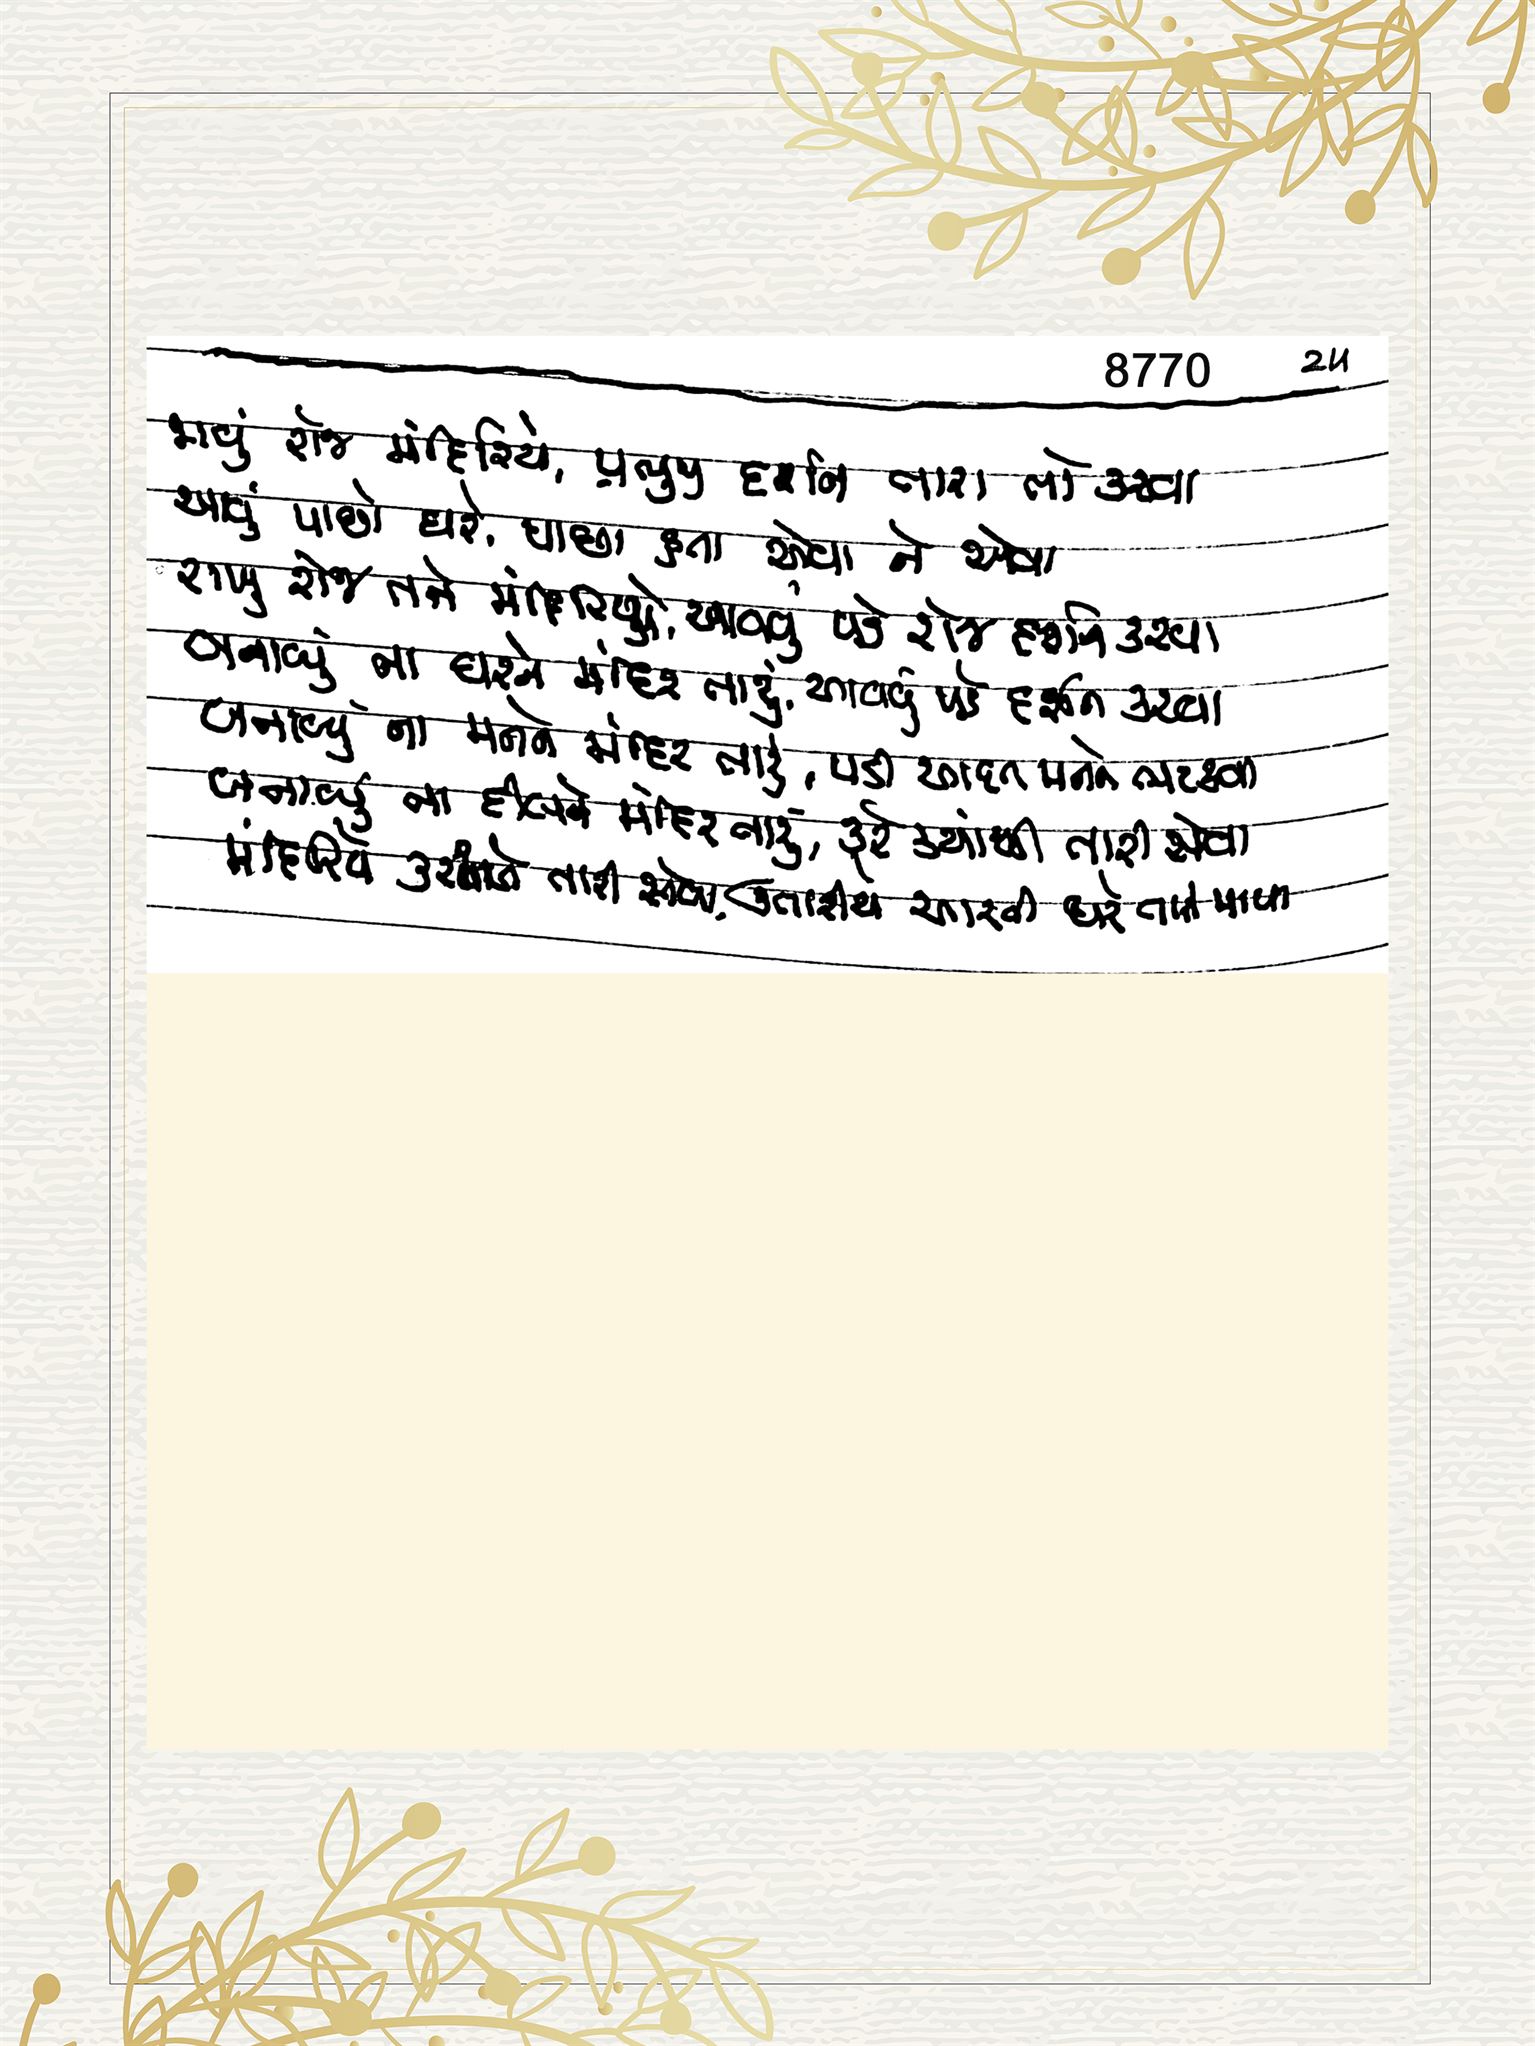 8770 24
જાવું રોજ મંદિરિયે, પ્રભુ દર્શન તારા તો કરવા
આવું પાછો ઘરે, પાછા હતા એવા ને એવા
રાખ્યું રોજ તને મંદિરિયે, આવવું પડે રોજ દર્શન કરવા
બનાવ્યું ના ઘરને મંદિર તારું, આવવું પડે દર્શન કરવા
બનાવ્યું ના મનને મંદિર તારું, પડી આદત મનને ભટકવા
બનાવ્યું ના દીલને મંદિર તારું, કરે ક્યાંથી તારી સેવા
મંદિરિયે તારી સેવા, ઉતારીયે આરતી ઘરે